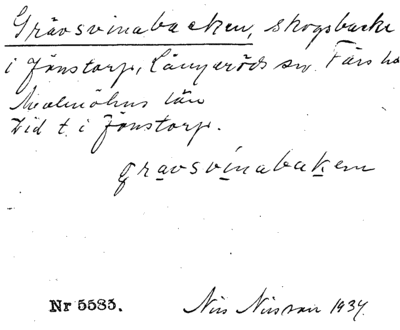 Grävsvinabacken, skogsbacke
i Jönstorp, Långaröds sn. Färs hd
Malmöhus län
Vid t. i Jönstorp.
gravsvinabakem
Nr 5585. Nils Nilsson 1934.